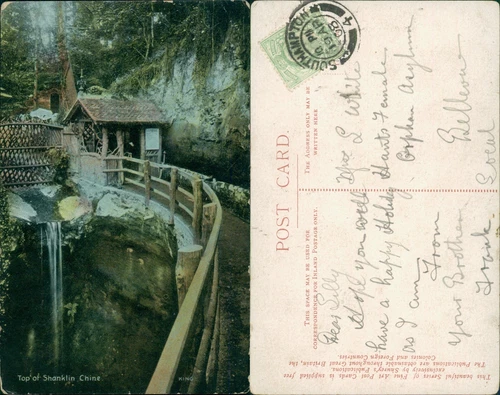 Top of Shanklin Chine.
SOUTHAMPTON
4
POST CARD.
THE ADDRESS ONLY MAY BE
WRITTEN HERE
THIS SPACE MAY BE USED FOR
CORRESPONDENCE FOR INLAND POSTAGE ONLY.
Dear Lilly
Hope you will
have a happy Holiday
as I am
From
Your Brother
Frank
Miss L White
Hants Female
Orphan Asylum
Bellevue
This beautiful Series of Fine Art Post Cards is supplied free
exclusively by Shurey's Publications.
The Publications are obtainable throughout Great Britain, the
Colonies and Foreign Countries.